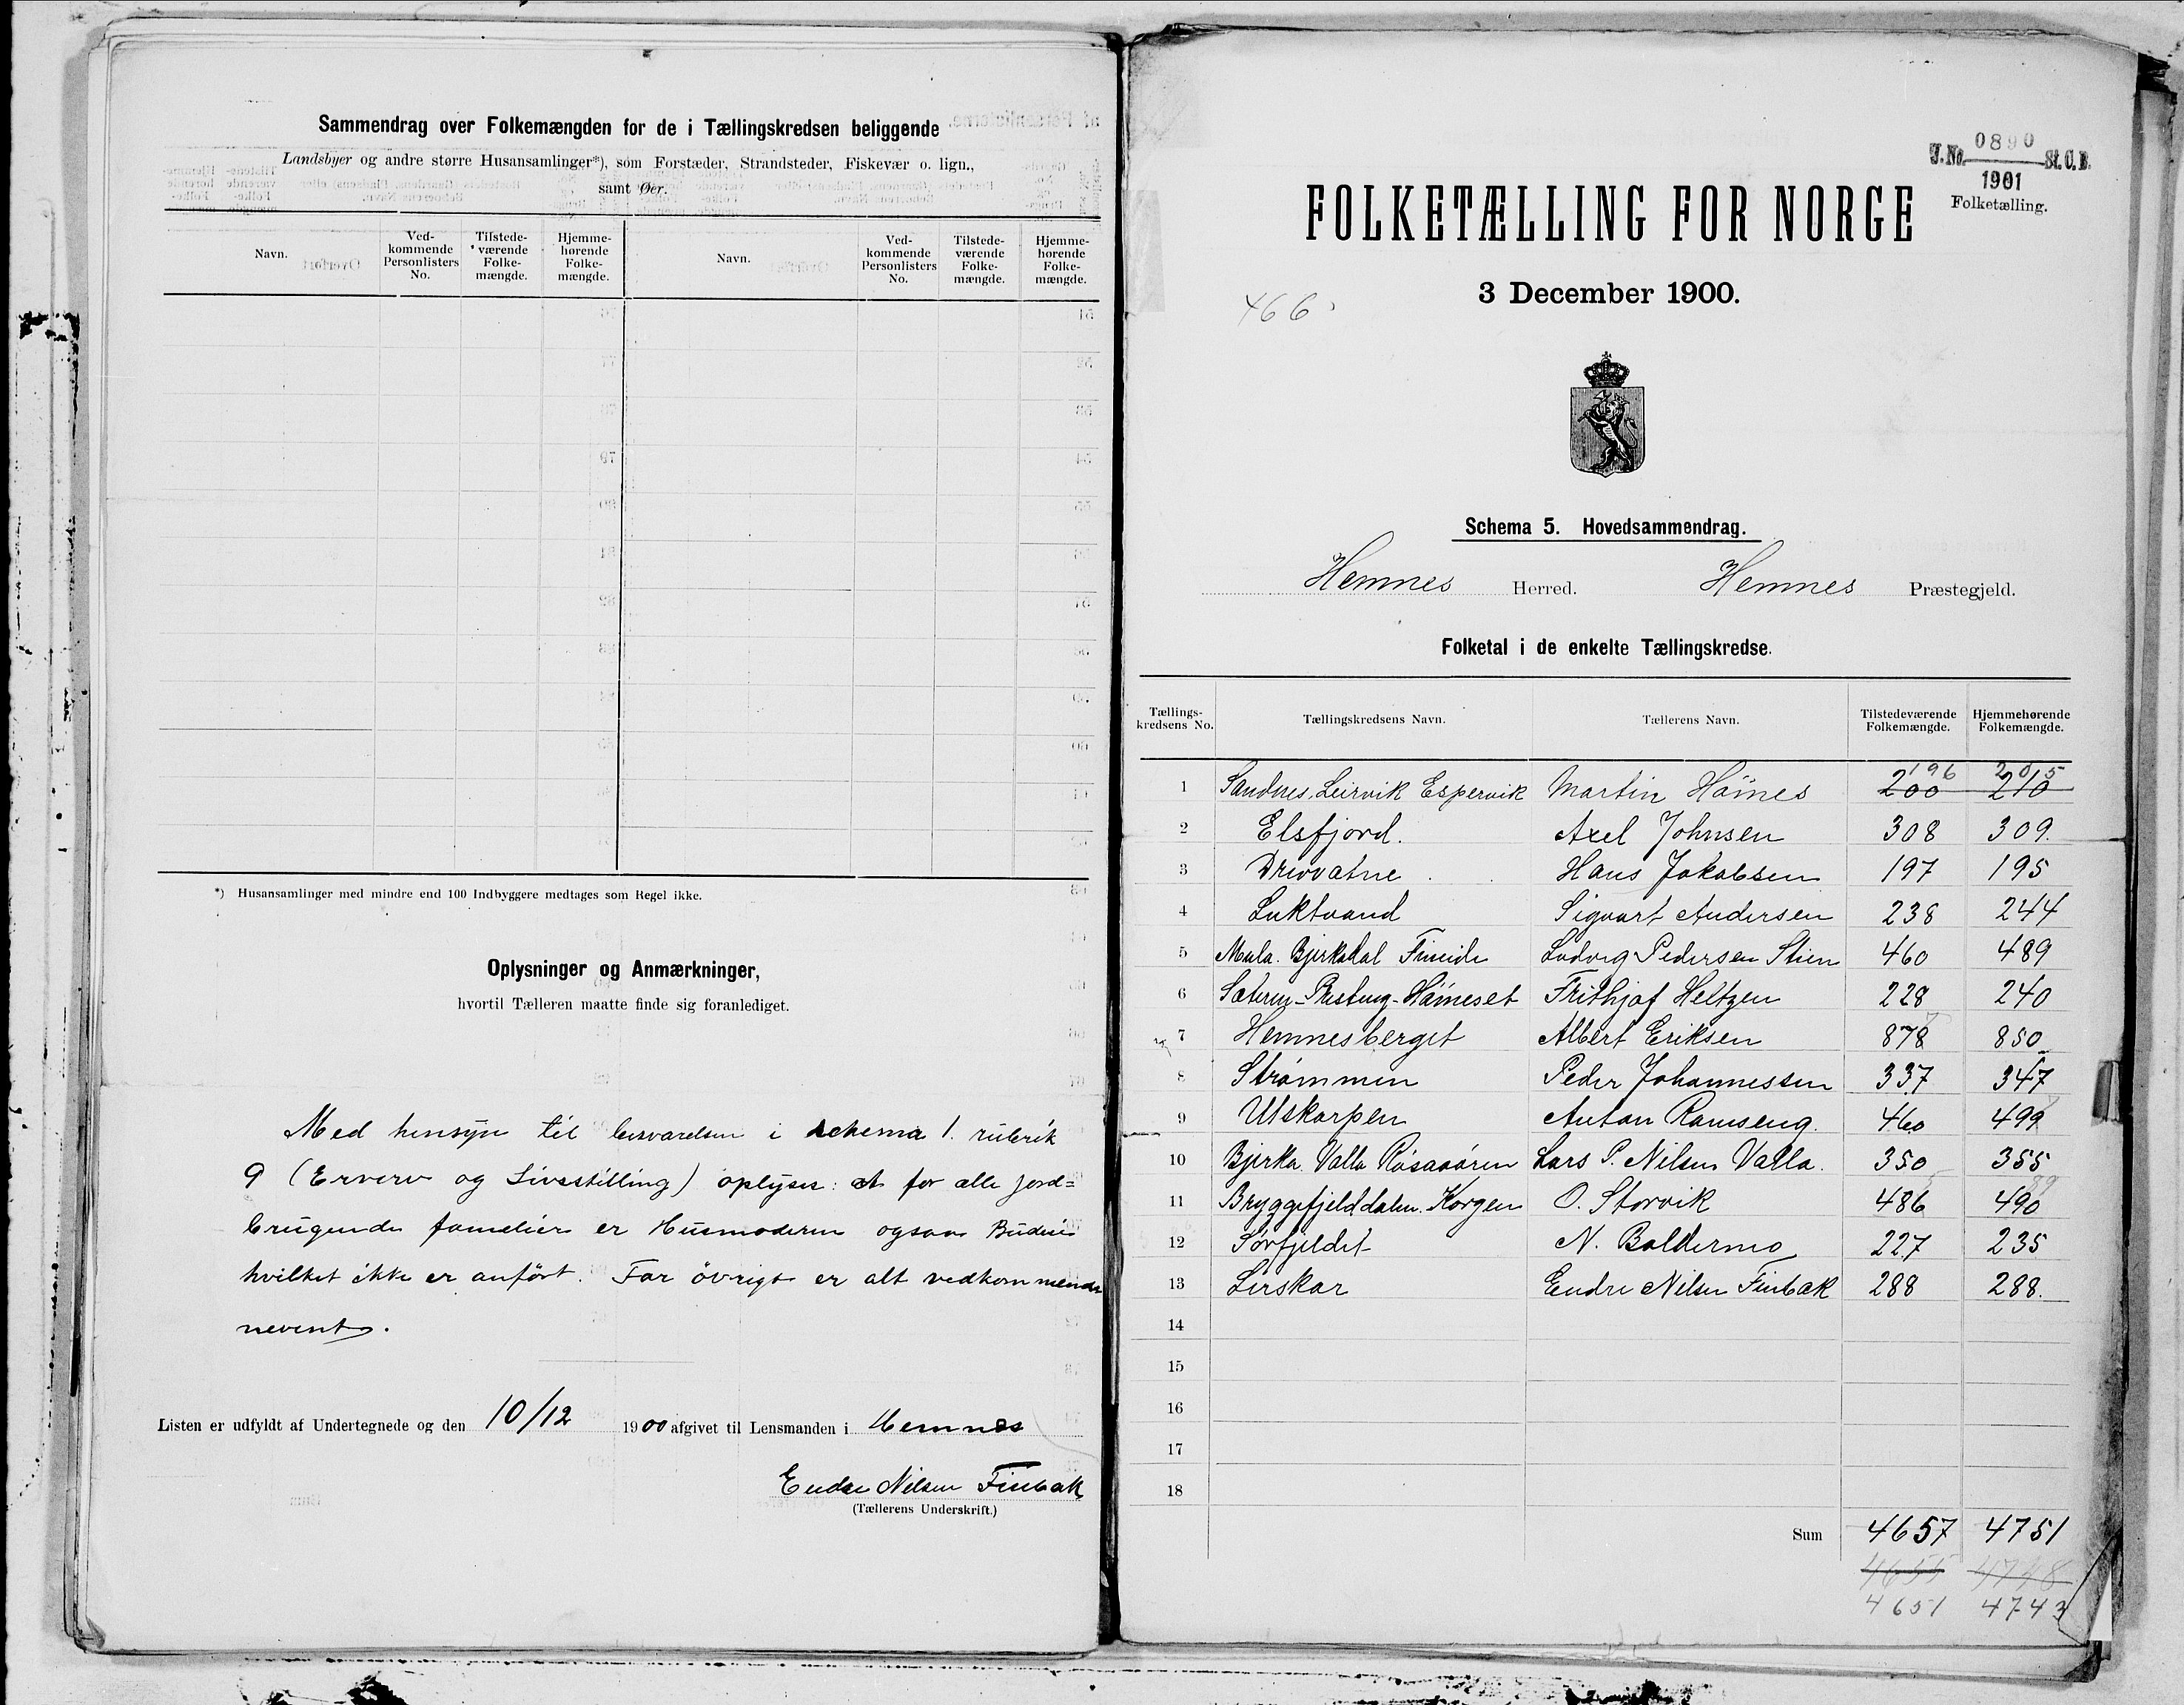 Sammendrag over Folkemængden for de i Tællingskredsen beliggende
Landsbyer og andre større Husansamlinger*), som Forstæder, Strandsteder, Fiskevær o. lign.,
samt Øer.
Navn. Ved-kommende Personlisters No. Tilstede-værende Folke-mængde. Hjemme-hørende Folke-mængde. Navn. Ved-kommende Personlisters No. Tilstede-værende Folke-mængde. Hjemme-hørende Folke-mængde.
*) Husansamlinger med mindre end 100 Indbyggere medtages som Regel ikke.
Oplysninger og Anmærkninger,
hvortil Tælleren maatte finde sig foranlediget.
Med hensyn til besvarelsen i schema 1. rubrik
9 (Erverv og Livsstilling) oplyses: at for alle jord=
brugende familier er Husmoderen ogsaa Budeie
hvilket ikke er anført. For øvrigt er alt vedkommende
nevent.
Listen er udfyldt af Undertegnede og den 10/12 1900 afgivet til Lensmanden i Hemnes
Endre Nilsen Finbak
(Tællerens Underskrift.)
J. No. 0890 St. C. B.
1901
Folketælling.
FOLKETÆLLING FOR NORGE
3 December 1900.
466
Schema 5. Hovedsammendrag.
Hemnes Herred. Hemnes Præstegjeld.
Folketal i de enkelte Tællingskredse.
Tællings-kredsens No. Tællingskredsens Navn. Tællerens Navn. Tilstedeværende Folkemængde. Hjemmehørende Folkemængde.
196 205
1 Sandnes, Leirvik Espervik Martin Høines 200 210
2 Elsfjord. Axel Johnsen 308 309.
3 Drevvatne Hans Jakobsen 197 195
4 Luktvand Sigvart Andersen 238 244
5 Mula. Bjerkadal Fineide Ludvig Pedersen Stien 460 489
6 Frithjof Heltzen 228 240
7 Hemnesberget Albert Eriksen 878 850
8 Strømmen Peder Johannessen 337 347
9 Utskarpen Anton Ramseng. 460 499
10 Bjerka. Valla Røsaaøren Lars P. Nilsen Valla. 350 355
11 Bryggefjelddalen. Korgen O. Storvik 486 490
12 Sørfjeldet N. Baldermo 227 235
13 Lerskar Endre Nilsen Finbak 288 288.
14
15
16
17
18
Sum 4657 4751
4655 4748
4651 4743